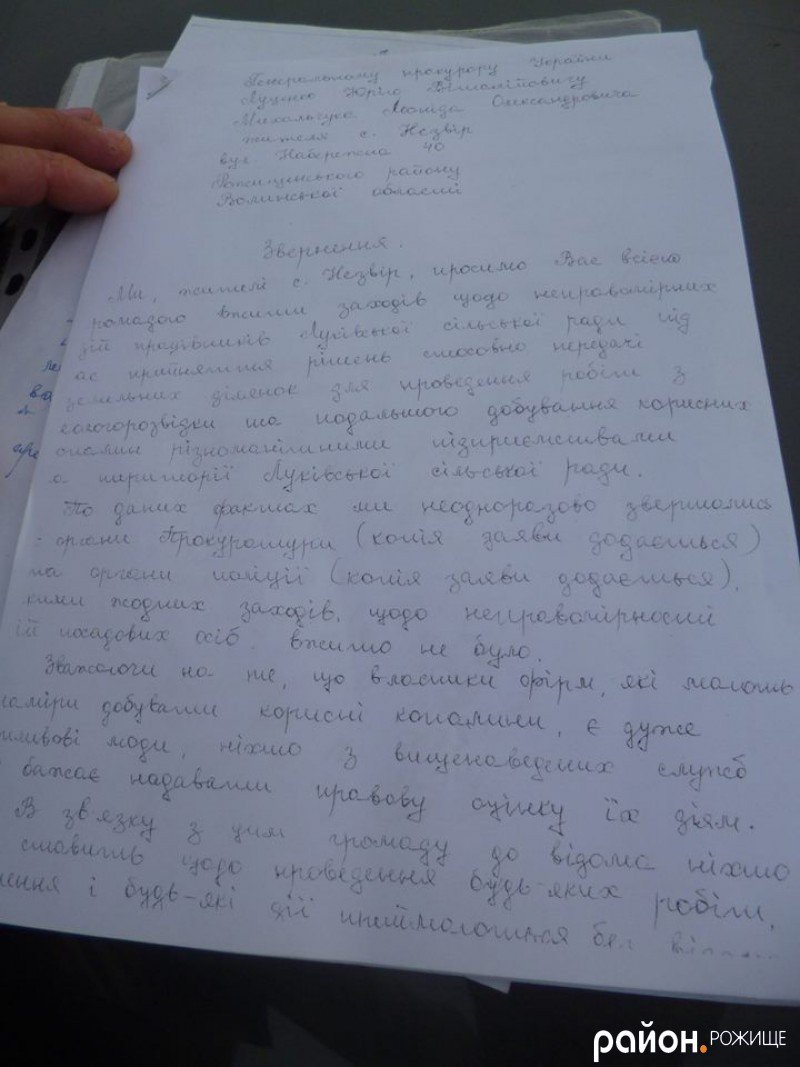 Генеральному прокурору України
Луценко Юрію Віталійовичу
Михальчука Леоніда Олександровича
жителя с. Незвір
вул Набережна 40
Рожищенського району
Волинської області
Звернення.
Ми, жителі с. Незвір, просимо Вас всією
ромадою вжити заходів щодо неправомірних
дій працівників Луківської сільської ради під
ас прийняття рішень стосовно передачі
земельних ділянок для проведення робіт з
еологорозвідки та подальшого добування корисних
опалин різноманітними підприємствами
а території Луківської сільської ради.
По даних фактах ми неодноразово звертались
органи Прокуратури (копія заяви додається)
та органи поліції (копія заяви додається),
кими жодних заходів, щодо неправомірності
ій посадових осіб вжито не було.
Зважаючи на те, що власники фірм, які мають
наміри добувати корисні копалини, є дуже
пливові люди, ніхто з вищенаведених служб
бажає надавати правову оцінку їх діям.
В зв'язку з цим громаду до відома ніхто
ставить щодо проведення будь-яких робіт,
ення і будь-які дії приймаються без
район.РОЖИЩЕ